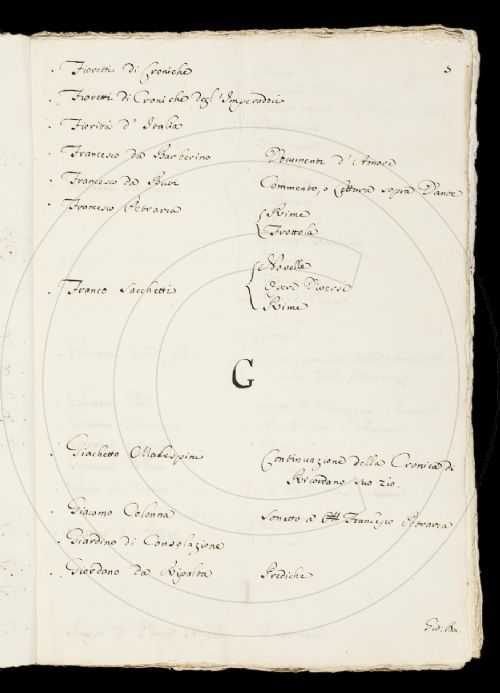 5
. Fioretti di Croniche
. Fioretti di Croniche degl'Imperadori
. Fiorità d'Italia
. Francesco da Barberino Documenti d'Amore
. Francesco da Buti Commento, o Lettura sopra Dante
. Francesco Petrarca Rime
Frottola
. Franco Sacchetti Novelle
Opere Diverse
Rime
G
. Giachetto Malespini Continuazione della Cronica di
Ricordano suo zio.
. Giacomo Colonna Sonetto a Francesco Petrarca
. Giardino di Consolazione
. Giordano da Ripalta Prediche